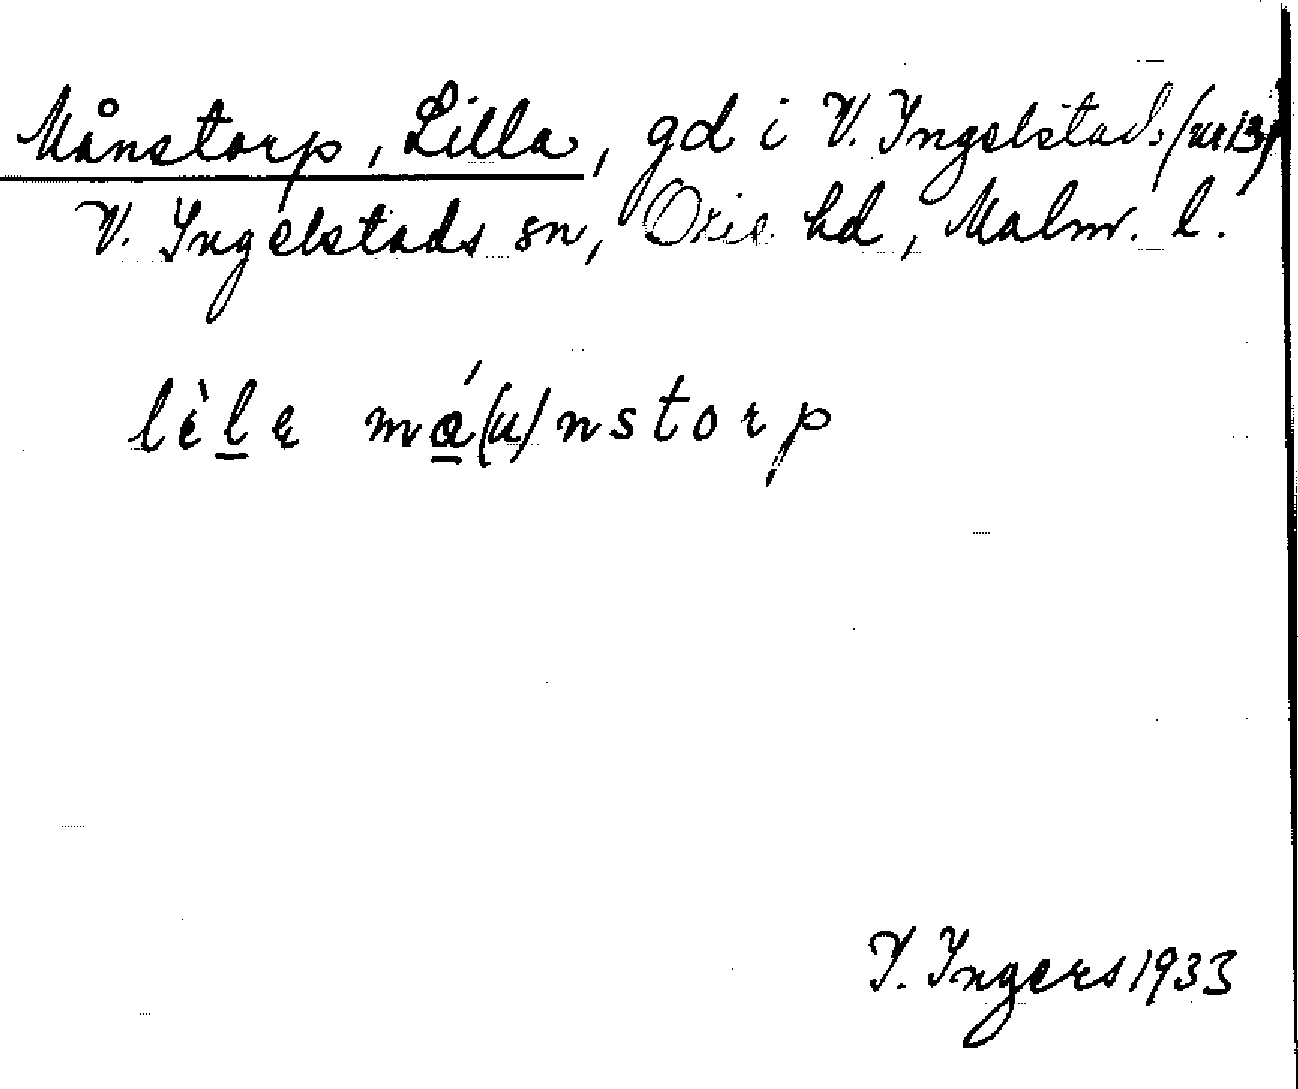 Månstorp, Lilla, gd i V. Ingelstad (nr 13)
V. Ingelstads sn, Oxie hd, Malm. l.
lèle má(u)nstorp
I. Ingers 1933